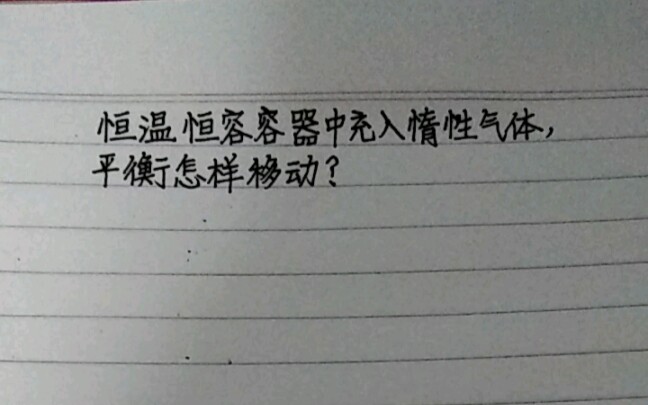 恒温恒容容器中充入惰性气体,
平衡怎样移动?